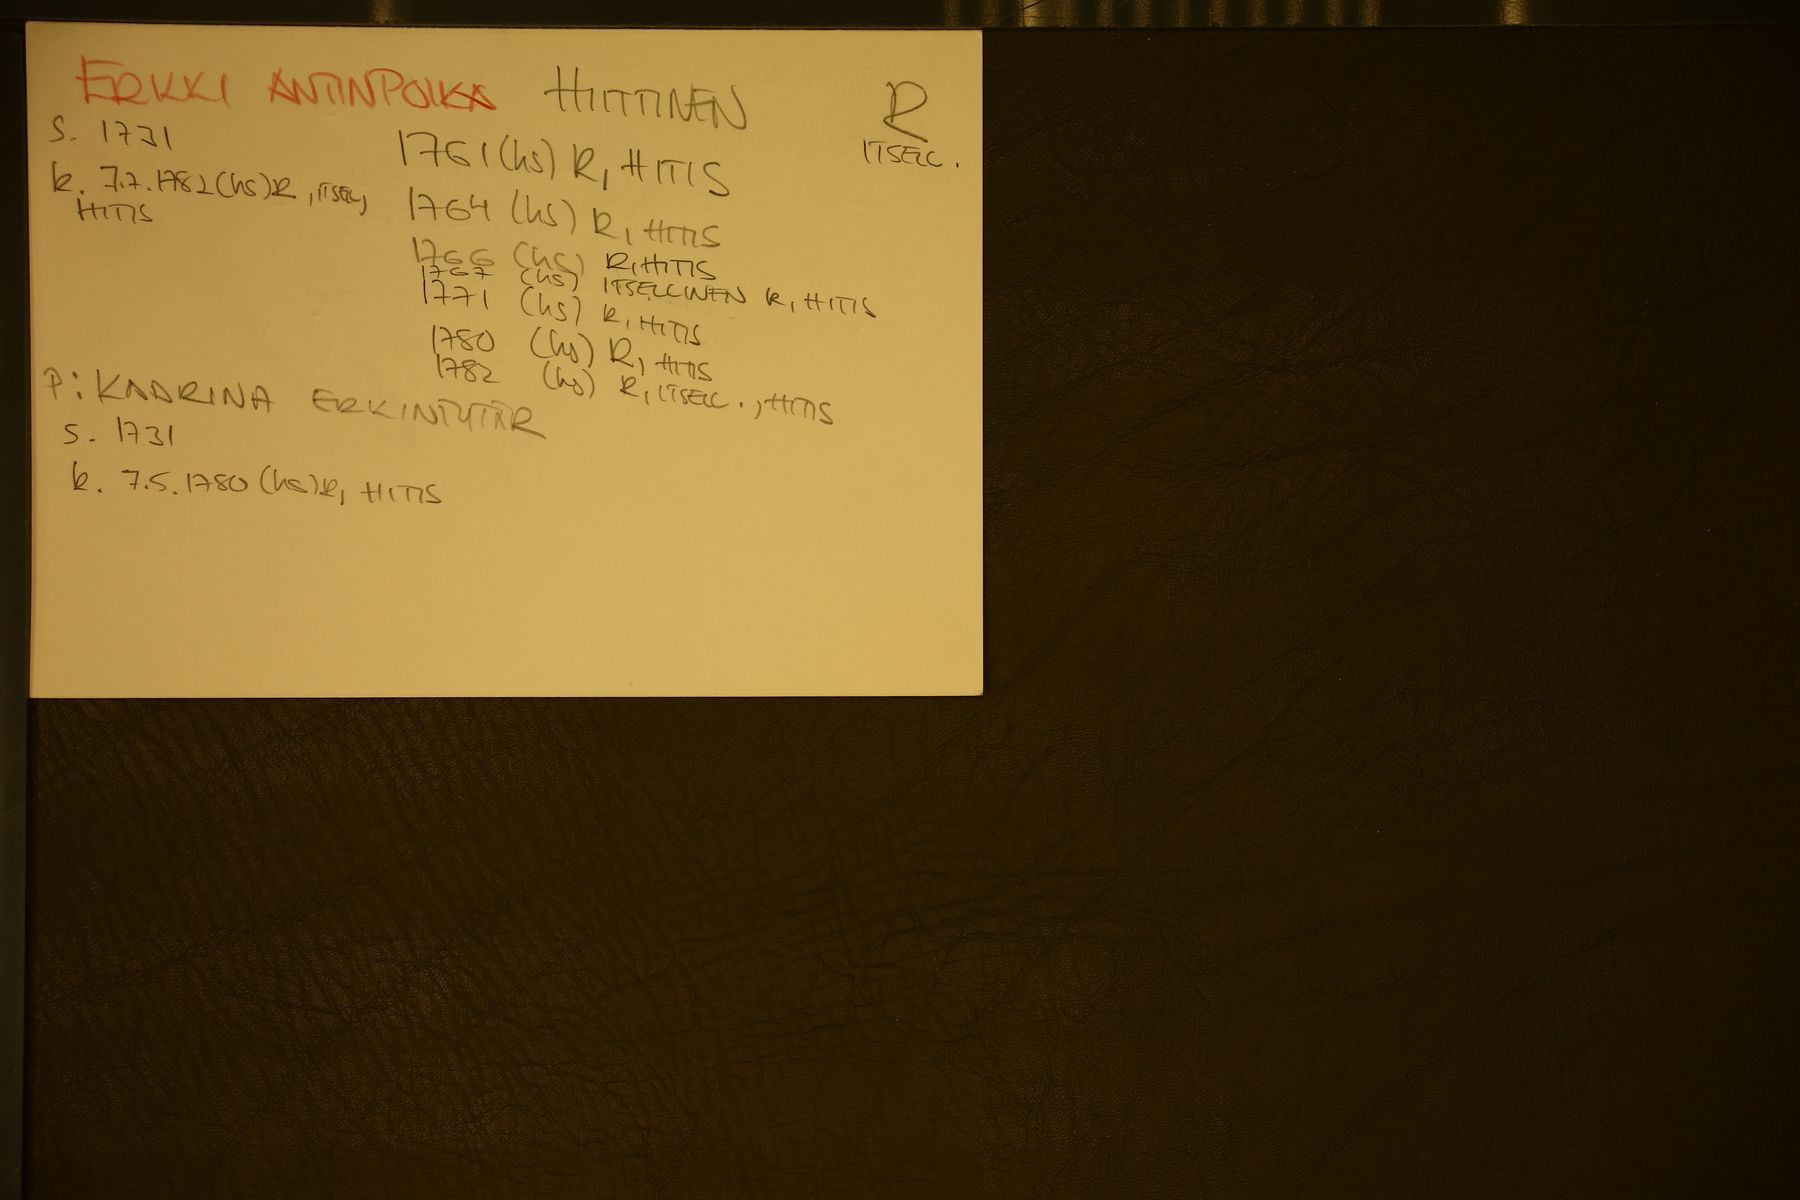 ERKKI ANTINPOIKA HIITTINEN R
ITSELL.
S. 1731
k. 7.7.1782 (hs) R, ITSELL,
HITIS
1761 (hs) R, HITIS
1764 (hs) R, HITIS
1766 (hs) R, HITIS
1767 (hs) ITSELLINEN R, HITIS
1771 (hs) R, HITIS
1780 (hs) R, HITIS
1782 (hs) R, ITSELL., HITIS
P: KAARINA ERKINTYTÄR
S. 1731
k. 7.5.1780 (hs) R, HITIS